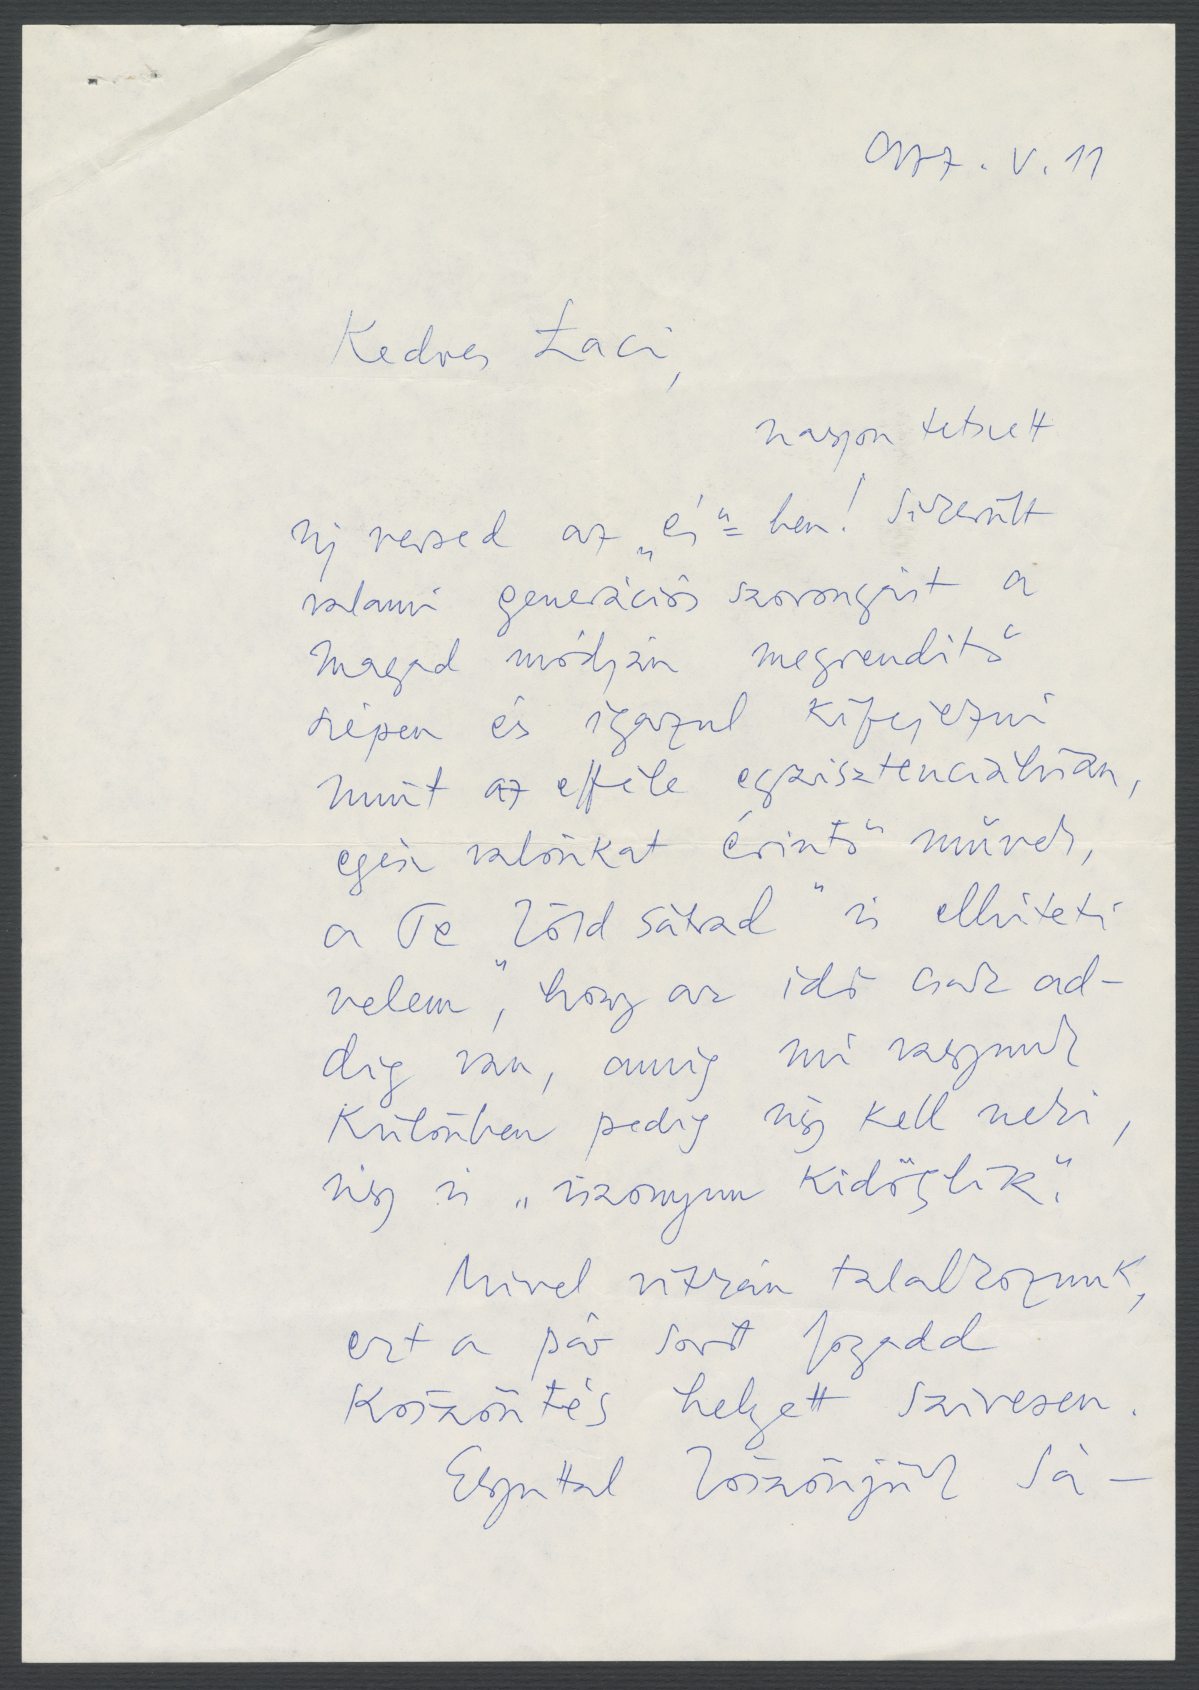 977. V. 11
Kedves Laci,
nagyon tetszett
új versed az „és"=ben! Sikerült
valami generációs szorongást a
Magad módján megrenditő
szépen és igazul kifejezni
mint az efféle egzisztenciálisan,
egész valónkat érintő művek,
a Te Zöld sátrad" is elhiteti
velem", hogy az idő csak ad-
dig van, amig mi vagyunk
Különben pedig úgy kell neki,
úgy is „iszonyúan kidöglik".
Mivel ritkán találkozunk,
ezt a pár sort fogadd
Köszöntés helyett szivesen.
Egyuttal köszönjük Sá-